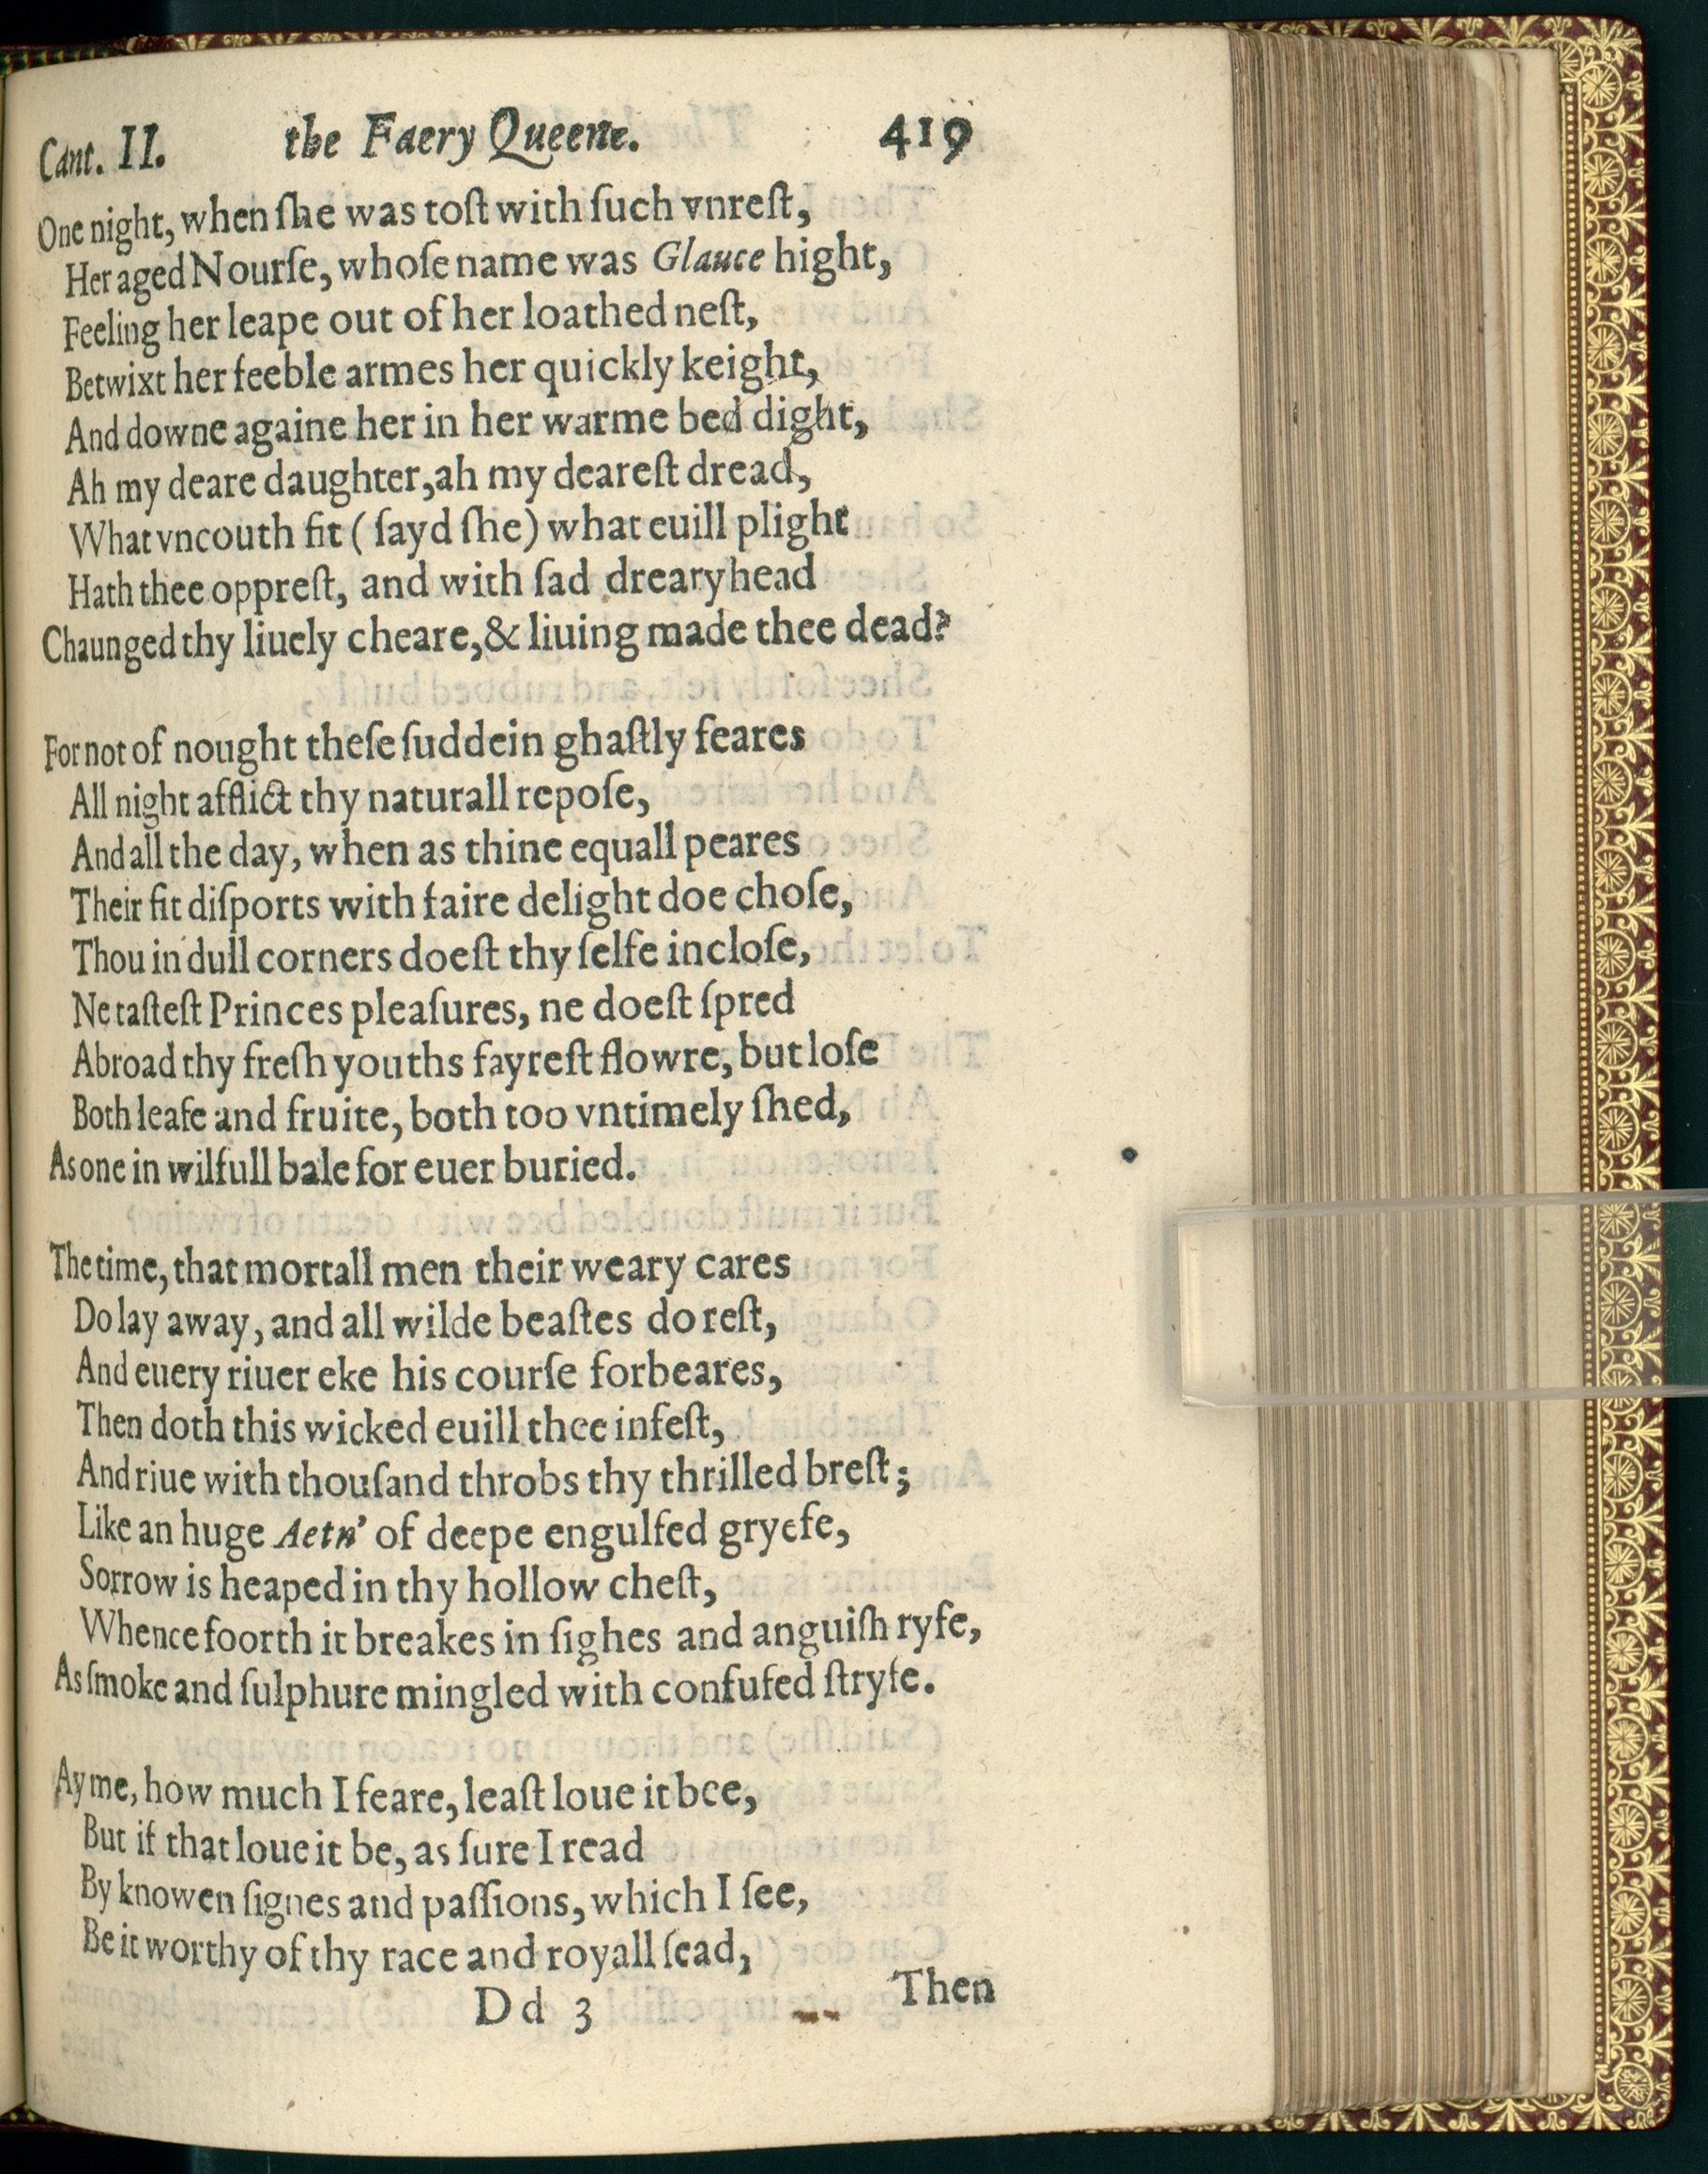 Cant. II. the Faery Queene. 419
One night, when ſhe was toſt with ſuch vnreſt,
Her aged Nourſe, whoſe name was Glauce hight,
Feeling her leape out of her loathed neſt,
Betwixt her feeble armes her quickly keight,
And downe againe her in her warme bed dight,
Ah my deare daughter, ah my deareſt dread,
What vncouth fit (ſayd ſhe) what euill plight
Hath thee oppreſt, and with ſad drearyhead
Chaunged thy liuely cheare, & liuing made thee dead?
For not of nought theſe ſuddein ghaſtly feares
All night afflict thy naturall repoſe,
And all the day, when as thine equall peares
Their fit diſports with faire delight doe choſe,
Thou in dull corners doeſt thy ſelfe incloſe,
Ne taſteſt Princes pleaſures, ne doeſt ſpred
Abroad thy freſh youths fayreſt flowre, but loſe
Both leafe and fruite, both too vntimely ſhed,
As one in wilfull bale for euer buried.
The time, that mortall men their weary cares
Do lay away, and all wilde beaſtes do reſt,
And euery riuer eke his courſe forbeares,
Then doth this wicked euill thee infeſt,
And riue with thouſand throbs thy thrilled breſt;
Like an huge Aetn' of deepe engulfed gryefe,
Sorrow is heaped in thy hollow cheſt,
Whence foorth it breakes in ſighes and anguiſh ryfe,
As ſmoke and ſulphure mingled with confuſed ſtryfe.
Ay me, how much I feare, leaſt loue it bee,
But if that loue it be, as ſure I read
By knowen ſignes and paſſions, which I ſee,
Be it worthy of thy race and royall ſead,
Dd 3 Then